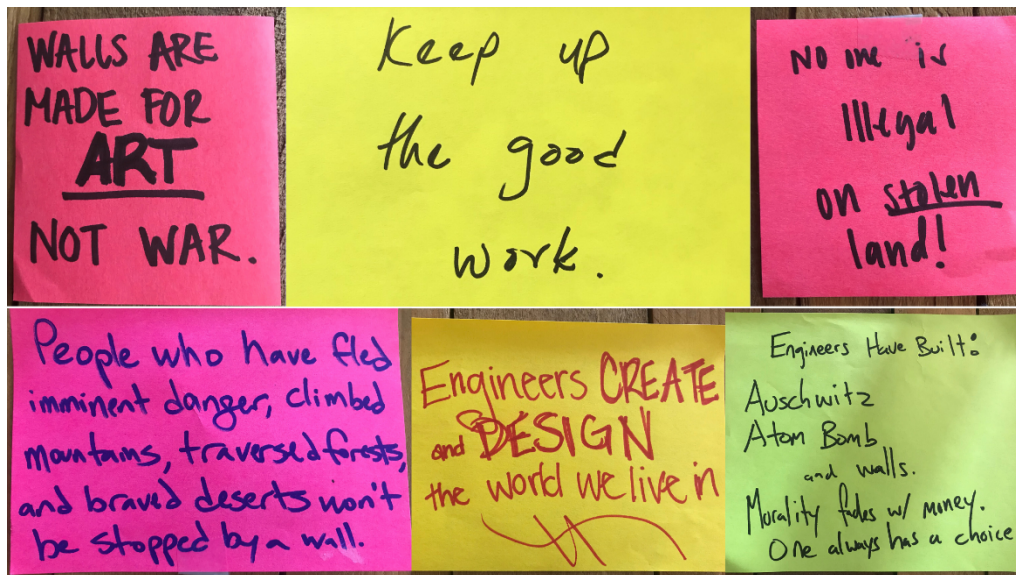 WALLS ARE
MADE FOR
ART
NOT WAR.
Keep up
the good
work.
No one is
Illegal
on stolen
land!
People who have fled
imminent danger, climbed
mountains, traversed forests,
and braved deserts won't
be stopped by a wall.
Engineers CREATE
and DESIGN
the world we live in
Engineers Have Built:
Auschwitz
Atom Bomb
and walls.
Morality fades w/ money.
One always has a choice